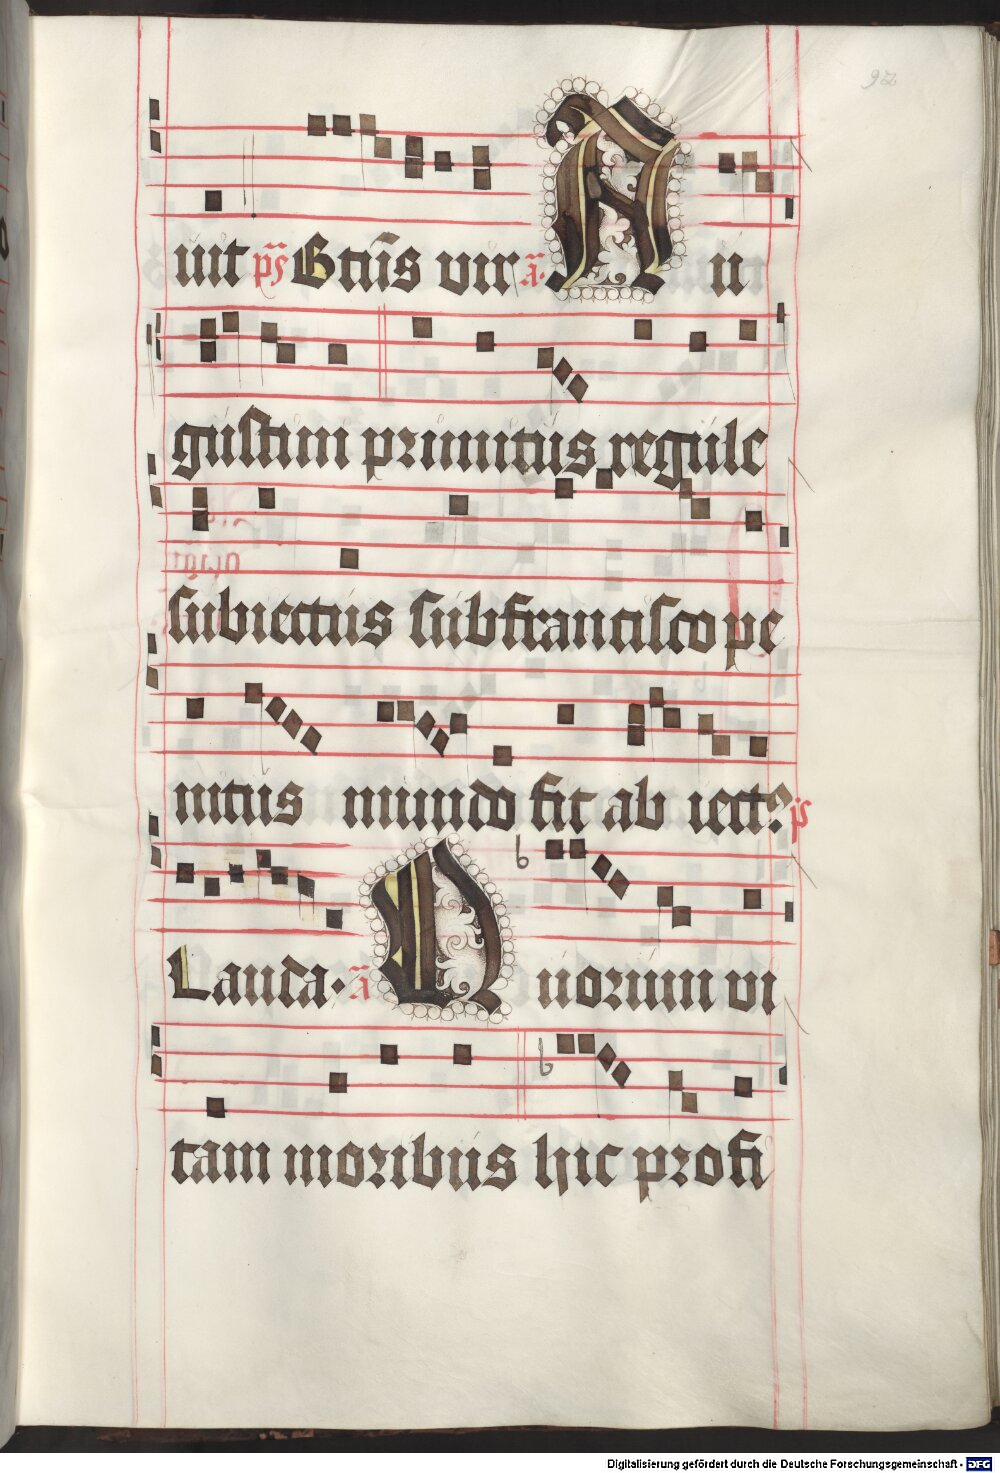 92
uit ps Btūs vir a A u
gustini primitus regule
subiectus sub francisco pe
nitus mundo fit ab iect? ps
Lauda· a Q uorum vi
tam moribus hic profi
Digitalisierung gefördert durch die Deutsche Forschungsgemeinschaft - DFG